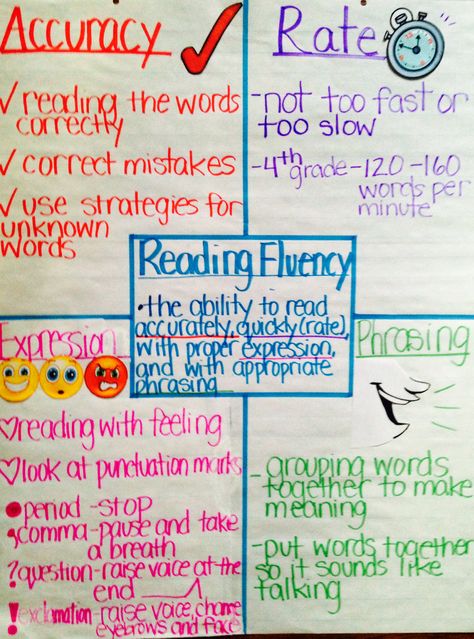 Accuracy
✓ reading the words
correctly
✓ correct mistakes
✓ use strategies for
unknown
words
Rate
-not too fast or
too slow
-4th grade-120-160
words per
minute
Reading Fluency
•the ability to read
accurately, quickly(rate),
with proper expression,
and with appropriate
phrasing
Expression
♡reading with feeling
♡look at punctuation marks
●period -stop
,comma-pause and take
a breath
?question-raise voice at the
end
!exclamation-raise voice, change
eyebrows and face
Phrasing
- grouping words
together to make
meaning
-put words together
so it sounds like
talking